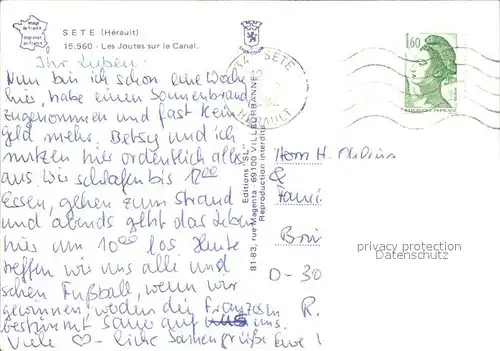 Image de France
Imprimé en France
SETE (Hérault)
15.560 - Les Joutes sur le Canal.
Ihr Lieben!
Nun bin ich schon eine Woche
hier, habe einen Sonnenbrand
zugenommen und fast kein
Geld mehr. Betsy und ich
nutzen hier ordentlich alles
aus. Wir schlafen bis 12⁰⁰
Essen, gehen zum Strand
und abends geht das Leben
hier um 10⁰⁰ los. Heute
treffen wir uns alle und
schen Fußball, wenn wir
gewinnen, werden die Franzosen
bestimmt sauer auf uns.
Viele ♡-liche Grüße Eure
Editions "SL"
81-83, rue Magenta - 69100 VILLEURBANNE
Reproduction interdite
34 SETE
12
HERAULT
1,60
REPUBLIQUE FRANCAISE
Herrn H.
&
Fami
D-30
R.
privacy protection
Datenschutz